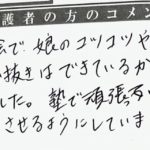 護者の方のコメン
会で娘のコツコツや
い抜きはできているか
した。塾で頑張って
させるようにしていま